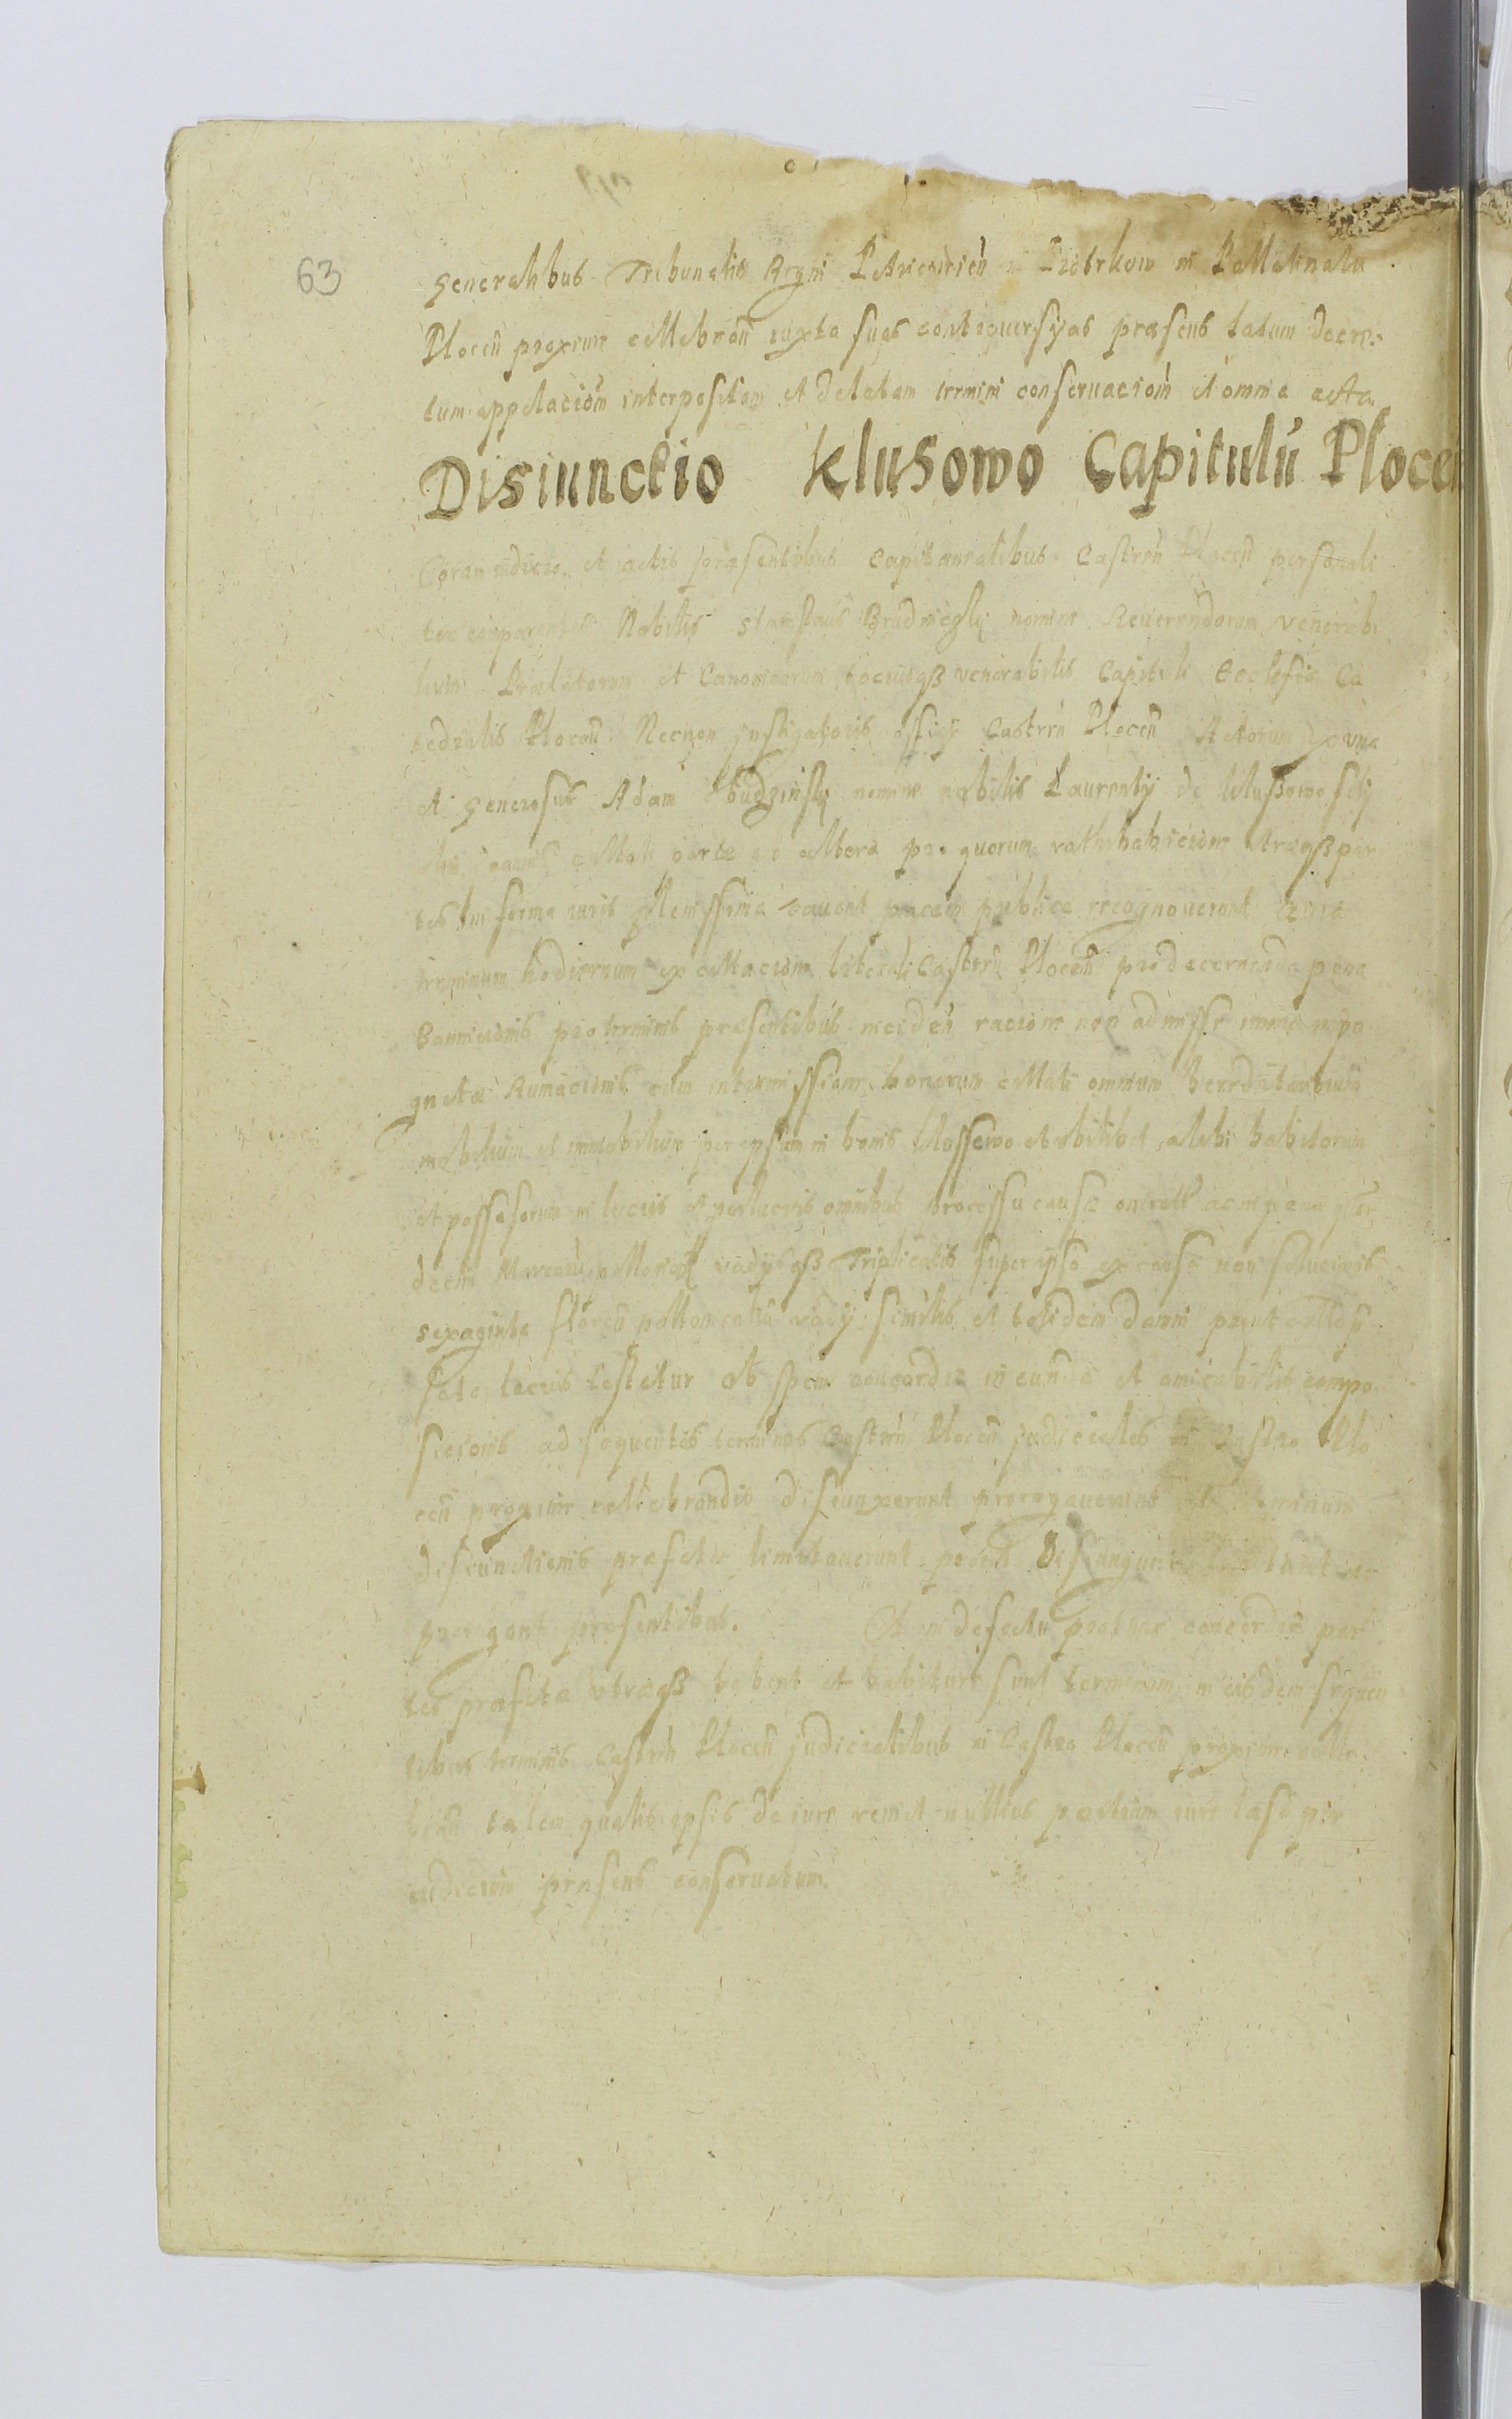 63
generalibus Tribunalis Regni Petricouień in Piotrkow in Pallatinatu
Plocen̄ proxime cellebran̄ iuxta suas controuersijas praesens latum decre-
tum appellacionm̄ interpositam et delatam termini conseruacionm̄ et omnia acta
Disiunctio Klusowo Capitulū Plocen
Coram iudicio et actis praesentibus Capitanealibus Castren̄ Plocen̄ personali
ter comparentes Nobilis Stanislaus Brudniczky nomine Reuerendorum venerabi
lium Praelatorum et Canonicorum tociusqß venerabilis Capituli Ecclesiae Ca
tedralis Plocen̄ Necnon instigatoris officij Castren̄ Plocen̄ Actorum ex vna
et generosus Adam Budzinsky nomine nobilis Laurentij de Klusowo filij
citati parte ex altera pro quorum rathihabicione vtraeqß par
tes in forma iuris plenissima cauent palam publice recognouerunt Quia
terminum hodiernum ex cittacione literali Castren̄ Plocen̄ pro decernenda pena
Bannicionis pro terminis praesentibus inciden̄ racione non admissae
Rumacionis cum intromissione bonorum cittati omnium hereditariorum
mobilium et immobilium per ipsum in bonis Klossewo et vbilibet alibi habitorum
et possessorum in lucris et perlucris omnibus processu causae ac in pena quatuor
decim Marcarū Polloniā vadijsqß Triplicatis super ipso ex causa non solucionis
sexaginta floren̄ pollonicaliū vadij similis et totidem damni prout cittacō
lacius testatur ob spem concordiae ineundae et amicabilis compo
sicionis ad sequentes terminos Castren̄ Plocen̄ judiciales in Castro Plo
cen̄ proxime cellebrandis disiunxerunt prorogauerunt et terminum
disiunctionis praefatis limitauerunt prout disiungunt
prorogant praesentibus. Et in defectu protunc concordiae par
tes praefatae vtraeqß habent et habiturae sunt terminum in eisdem sequen
tibus terminis Castren̄ Plocen̄ judicialibus in Castro Plocen̄ proxime celle
bran̄ talem qualis ipsis de iure venit nullius partium iure laeso per
iudicium praesens conseruatum.